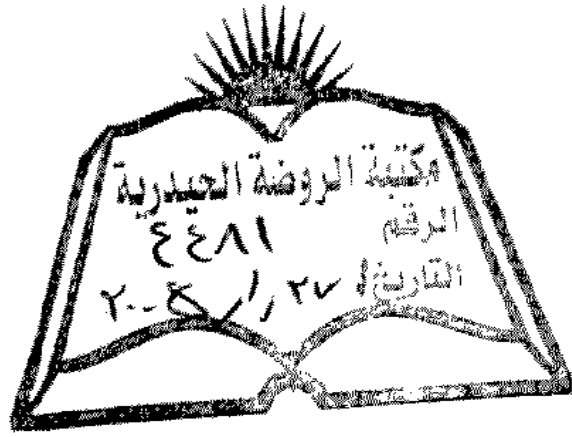 مكتبة الروضة الحيدرية
الرقم ٤٤٨١
التاريخ ٢٧ / ١ /